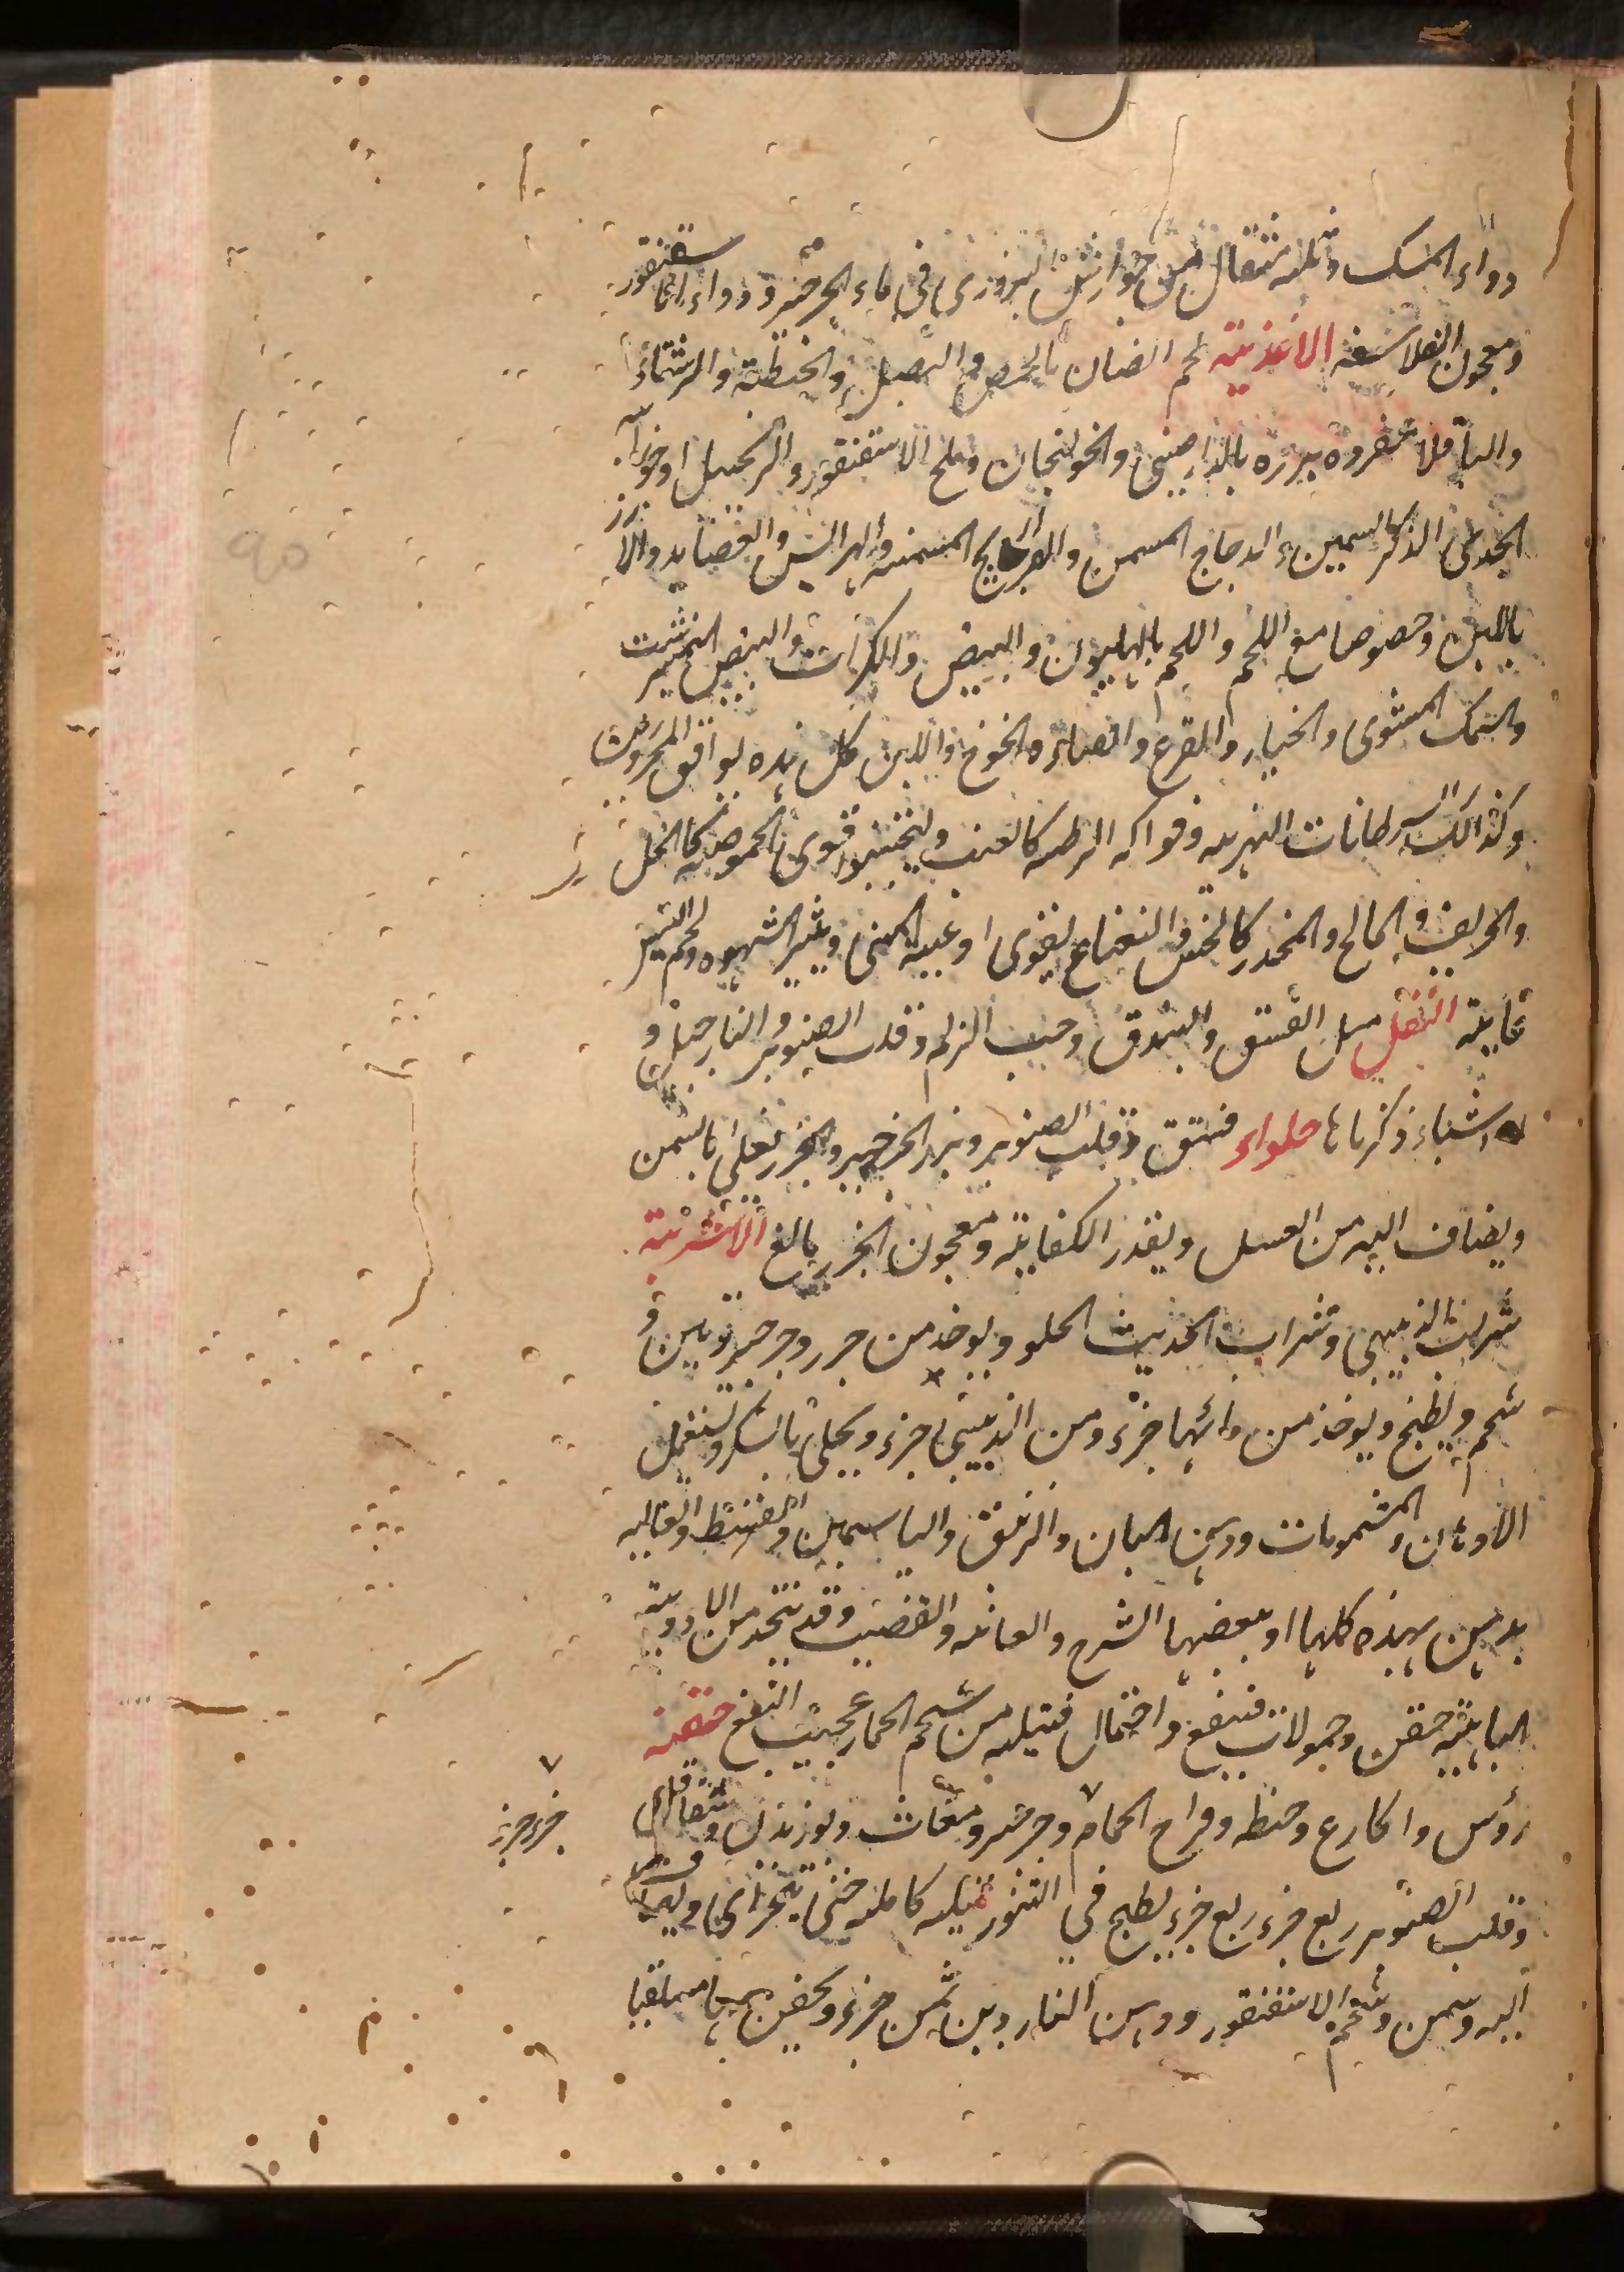 دواء المسك وثلثه مثقال من جوارش البزوري في ماء الجرجير ودواء السقنقور
ومعجون الفلاسفه الاغذية لحم الضان بالحمص والبصل والحنطة والرشتا
والباقلا مفروه ببزره بالدارصيني والخولنجان وملح الاسقنقور والزنجبيل او
الجدي الذكر السمين والدجاج المسمن والفراريج المسمنه والهرايس والعصايد والارز
باللبن وخصوصا مع اللحم واللحم بالهليون والبيض والكراث والبيض النيمبرشت
والسمك المشوى والخيار والقرع والخوخ واللبن كل هذه يوافق المحرورين
وكذالك السرطانات النهريه وفواكه الرطبه كالعنب وليجتنبوا قوى الحموضه كالخل
والحريف والمالح والمخدر كالخس والنعناع يقوى اوعيه المنى ويثير الشهوه ولحم
غاية النقل مثل الفستق والبندق وحب الزلم وقلب الصنوبر والنارجيل و
اشياء ذكرناها حلواء فستق وقلب الصنوبر وبزر الجرجير والجزر يغلى بالسمن
ويضاف اليه من العسل وبقدر الكفاية ومعجون الجزر بالغ الاشربة
شراب الزبيبى وشراب الحديث الحلو ويوخذ من جزر وجرجير وتين و
شحم ويطبخ ويوخذ من مائها جزء ومن الزبيبى جزء ويحلى بالسكر ويستعمل
الادهان والمشمومات ودهن البان والزنبق والياسمين والقسط والغاليه
يدهن بهذه كلها او ببعضها الشرج والعانه والقضيب وقد يتخذ من الادوية
الباهية حقن وحمولات فينفع واحتمال فتيله من شحم الحمار عجيب النفع حقنه
رؤس واكارع وحنطه وفراخ الحمام وجرجير ومغاث وبوزيدان وشقاقل
جزء جزء
وقلب الصنوبر ربع جزء ربع جزء يطبخ في التنور ليله كامله حتى يتهرى
اليه وسمن وشحم الاسقنقور ودهن الناردين ثمن جزء ويحقن بها مستلقيا